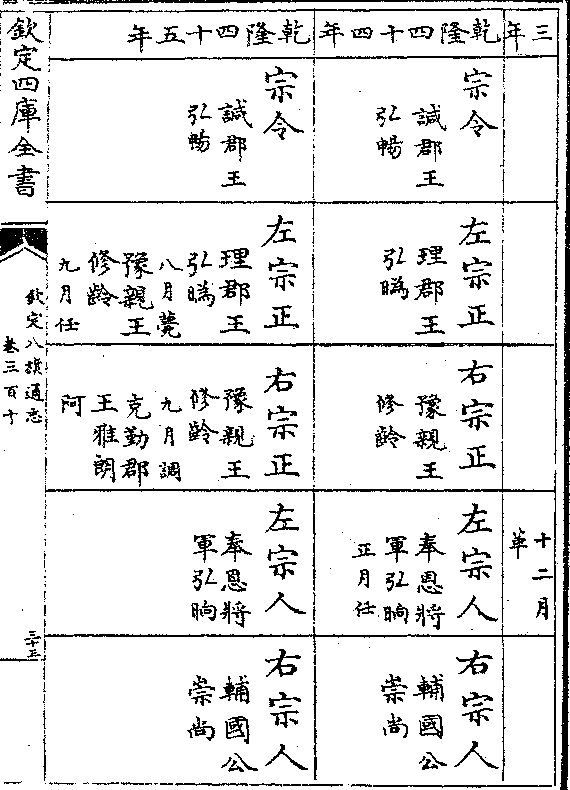 三年
十二月
革
乾隆四十四年
宗令
諴郡王
弘暢
左宗正
理郡王
弘㬙
右宗正
豫親王
修齡
左宗人
奉恩將
軍弘晌
正月任
右宗人
輔國公
崇尚
乾隆四十五年
宗令
諴郡王
弘暢
左宗正
理郡王
弘㬙
八月薨
豫親王
修齡
九月任
右宗正
豫親王
修齡
九月調
克勤郡
王雅朗
阿
左宗人
奉恩將
軍弘晌
右宗人
輔國公
崇尚
欽定四庫全書
欽定八旗通志
卷三百十
三十五